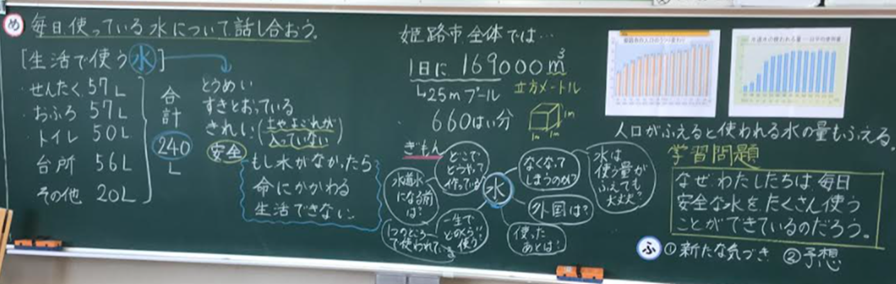 め 毎日使っている水について話し合おう。
[生活で使う水]
・せんたく 57L
・おふろ 57L
・トイレ 50L
台所 56L
その他 20L
合計
240
L
とうめい
すきとおっている
きれい(土やよごれが
入っていない)
安全
もし水がなかったら
命にかかわる
生活できない
姫路市全体では…
1日に 169000m³
立方メートル
↳25mプール
660はい分
1m
1m
1m
ぎもん
水
どこで
どうやって
作っているか
なくなって
しまうのか?
水は
使う量が
ふえても
大丈夫?
水道水
になる前
は?
外国は?
使った
あとは?
一生で
どのくらい
使う
人口がふえると使われる水の量もふえる。
学習問題
なぜ、わたしたちは毎日
安全な水をたくさん使う
ことができているのだろう。
ふ ①新たな気づき ②予想